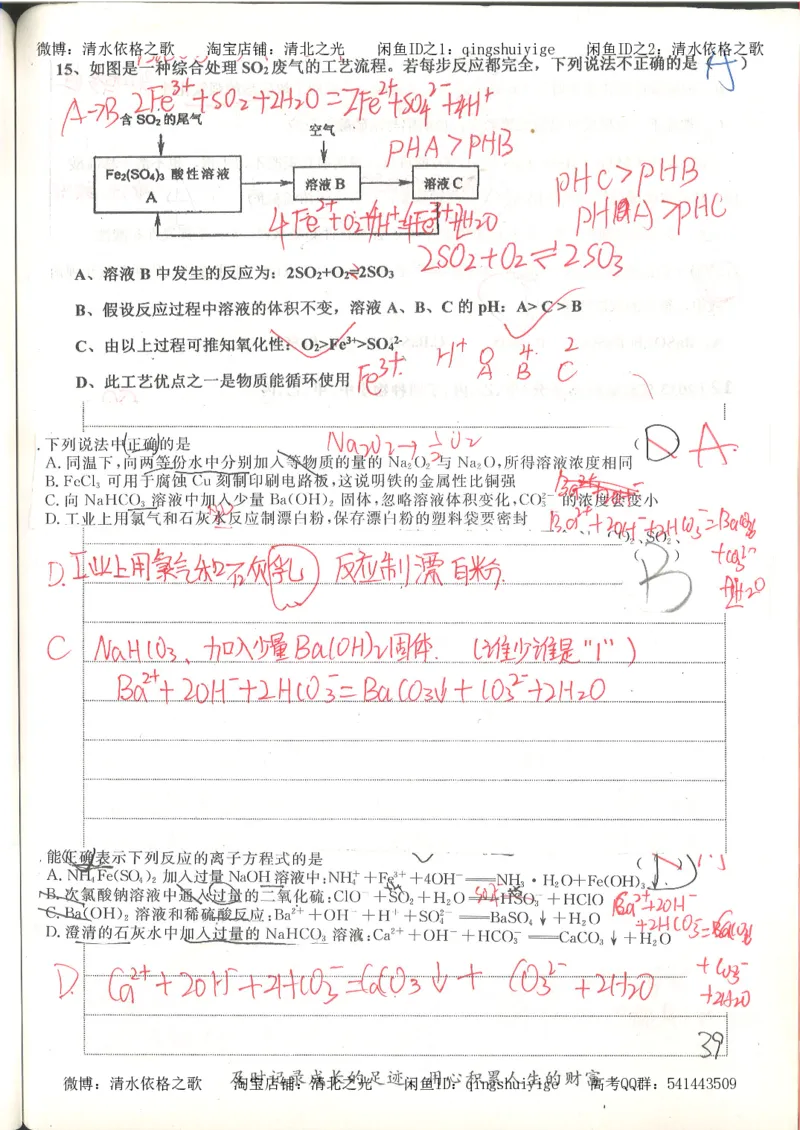 微博：清水依格之歌 淘宝店铺：清北之光 闲鱼ID之1：qingshuiyige 闲鱼ID之2：清水依格之歌
15、如图是一种综合处理 SO₂ 废气的工艺流程。若每步反应都完全，下列说法不正确的是（A）
A→B 2Fe³⁺+SO₂+2H₂O=2Fe²⁺+SO₄²⁻+4H⁺
含 SO₂ 的尾气
空气
pHA>pHB
Fe₂(SO₄)₃ 酸性溶液
A
溶液 B
溶液 C
pHC>pHB
pHA>pHC
4Fe²⁺+O₂+4H⁺=4Fe³⁺+2H₂O
2SO₂+O₂⇌2SO₃
A、溶液 B 中发生的反应为：2SO₂+O₂⇌2SO₃
B、假设反应过程中溶液的体积不变，溶液 A、B、C 的 pH：A> C > B
C、由以上过程可推知氧化性：O₂>Fe³⁺>SO₄²⁻
H⁺ 0 4 2
A B C
D、此工艺优点之一是物质能循环使用
Fe³⁺
Na₂O₂→½O₂
下列说法中正确的是（D）A.
A. 同温下,向两等份水中分别加入等物质的量的 Na₂O₂ 与 Na₂O,所得溶液浓度相同
B. FeCl₃ 可用于腐蚀 Cu 刻制印刷电路板,这说明铁的金属性比铜强
C. 向 NaHCO₃ 溶液中加入少量 Ba(OH)₂ 固体,忽略溶液体积变化,CO₃²⁻ 的浓度会变小
D. 工业上用氯气和石灰水反应制漂白粉,保存漂白粉的塑料袋要密封
Ba²⁺+2OH⁻+2HCO₃⁻=BaCO₃
+CO₃²⁻
+2H₂O
B
D. 工业上用氯气和石灰乳 反应制漂白粉.
C NaHCO₃、加入少量Ba(OH)₂固体.（谁少谁是"1"）
Ba²⁺+2OH⁻+2HCO₃⁻=BaCO₃↓+CO₃²⁻+2H₂O
能正确表示下列反应的离子方程式的是（ ）
A. NH₄Fe(SO₄)₂ 加入过量 NaOH 溶液中:NH₄⁺+Fe³⁺+4OH⁻══NH₃·H₂O+Fe(OH)₃↓
B. 次氯酸钠溶液中通入过量的二氧化硫:ClO⁻+SO₂+H₂O══HSO₃⁻+HClO
C. Ba(OH)₂ 溶液和稀硫酸反应:Ba²⁺+OH⁻+H⁺+SO₄²⁻══BaSO₄↓+H₂O
D. 澄清的石灰水中加入过量的 NaHCO₃ 溶液:Ca²⁺+OH⁻+HCO₃⁻══CaCO₃↓+H₂O
Ba²⁺+2OH⁻
+2HCO₃⁻=BaCO₃
+CO₃²⁻
+2H₂O
D. Ca²⁺+2OH⁻+2HCO₃⁻=CaCO₃↓+CO₃²⁻+2H₂O
39
及时记录成长的足迹 用心积累人生的财富
微博：清水依格之歌 淘宝店铺：清北之光 闲鱼ID：qingshuiyige 高考QQ群：541443509